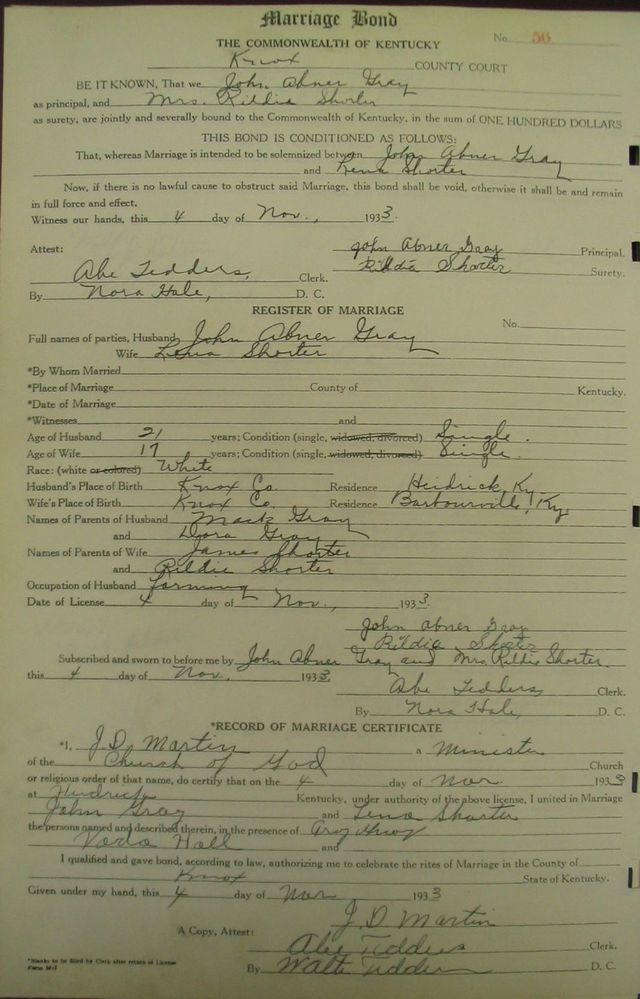 Marriage Bond
No. 56
THE COMMONWEALTH OF KENTUCKY
Knox COUNTY COURT
BE IT KNOWN, That we John Abner Gray
as principal, and Mrs. Rildia Shorter
as surety, are jointly and severally bound to the Commonwealth of Kentucky, in the sum of ONE HUNDRED DOLLARS
THIS BOND IS CONDITIONED AS FOLLOWS:
That, whereas Marriage is intended to be solemnized between John Abner Gray
and Lena Shorter
Now, if there is no lawful cause to obstruct said Marriage, this bond shall be void, otherwise it shall be and remain
in full force and effect.
Witness our hands, this 4 day of Nov., 1933.
Attest: John Abner Gray Principal.
Abe Tedders, Clerk. Rildia Shorter Surety.
By Nora Hale, D. C.
REGISTER OF MARRIAGE
No.
Full names of parties, Husband John Abner Gray
Wife Lena Shorter
*By Whom Married
*Place of Marriage County of Kentucky.
*Date of Marriage
*Witnesses and
Age of Husband 21 years; Condition (single, widowed, divorced) Single.
Age of Wife 17 years; Condition (single, widowed, divorced) Single.
Race: (white or colored) White
Husband's Place of Birth Knox Co. Residence Heidrick, Ky.
Wife's Place of Birth Knox Co. Residence Barbourville, Ky.
Names of Parents of Husband Mack Gray
and Dora Gray
Names of Parents of Wife James Shorter
and Rildie Shorter
Occupation of Husband Farming
Date of License 4 day of Nov., 1933.
John Abner Gray
Rildia Shorter
Subscribed and sworn to before me by John Abner Gray and Mrs Rildie Shorter.
this 4 day of Nov., 1933. Abe Tedders Clerk.
By Nora Hale, D. C.
*RECORD OF MARRIAGE CERTIFICATE
*I, J. D. Martin a Minister
of the Church of God Church
or religious order of that name, do certify that on the 4 day of Nov 1933
at Heidrick Kentucky, under authority of the above license, I united in Marriage
John Gray and Lena Shorter
the persons named and described therein, in the presence of
Hall and
I qualified and gave bond, according to law, authorizing me to celebrate the rites of Marriage in the County of
Knox State of Kentucky.
Given under my hand, this 4 day of Nov 1933
J. D Martin
A Copy, Attest: Abe Tedders Clerk.
By Walte Tedders D. C.
*Blanks to be filled by Clerk after return of License
Form M-7